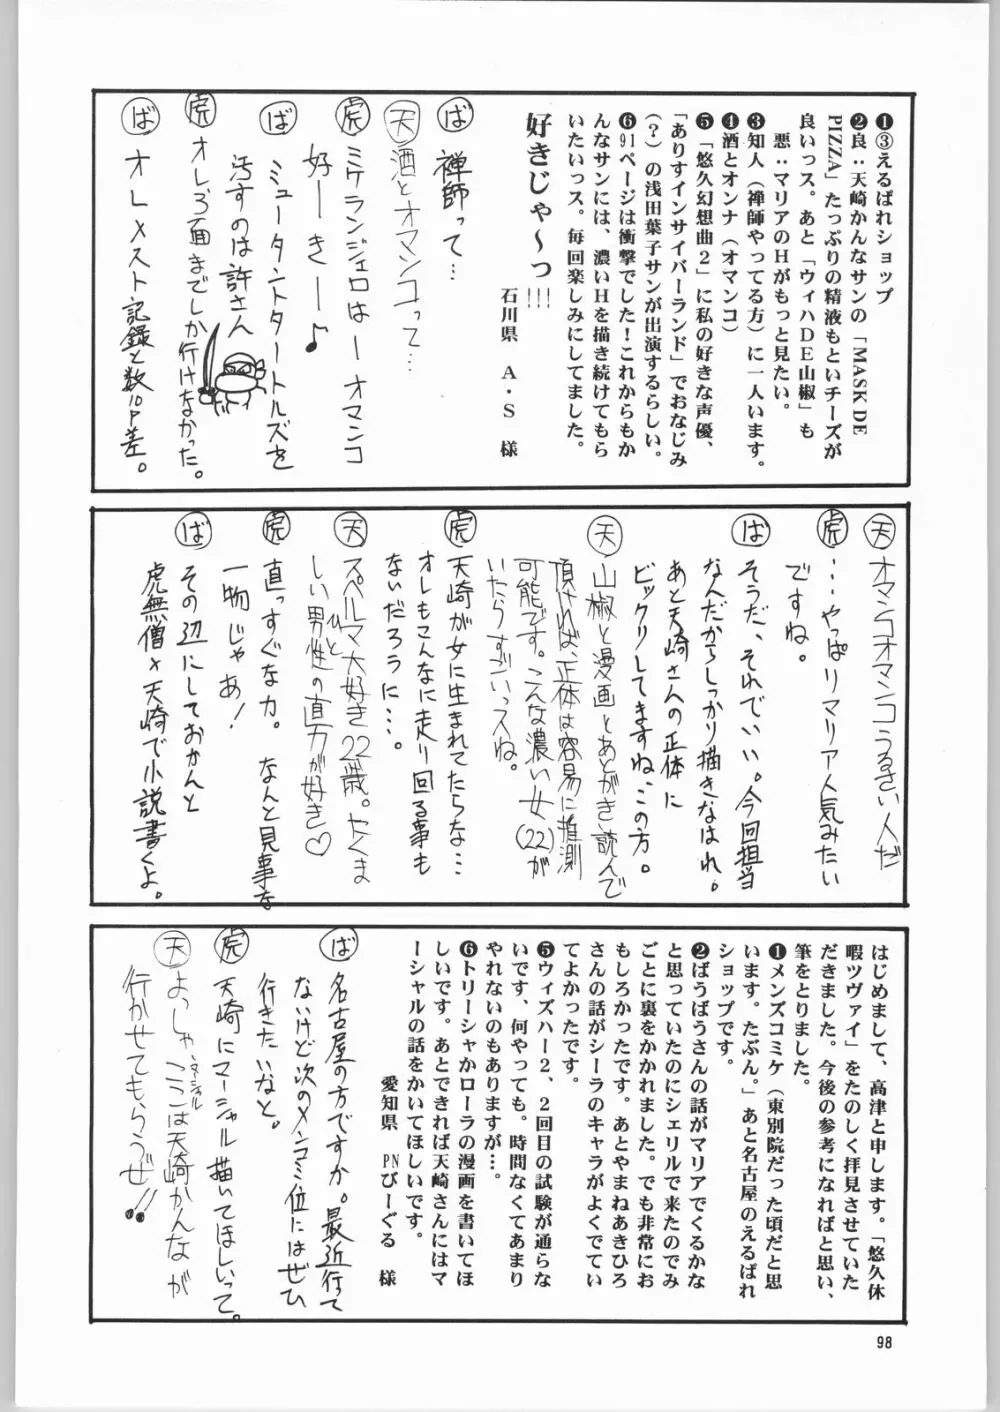 ❶③えるぱれショップ
❷良：天崎かんなサンの「MASK DE
PIZZA」たっぷりの精液もといチーズが
良いっス。あと「ウィハDE山椒」も
悪：マリアのHがもっと見たい。
❸知人（禅師やってる方）に一人います。
❹酒とオンナ（オマンコ）
❺「悠久幻想曲2」に私の好きな声優、
「ありすインサイバーランド」でおなじみ
（？）の浅田葉子サンが出演するらしい。
❻91ページは衝撃でした！これからもか
んなサンには、濃いHを描き続けてもら
いたいっス。毎回楽しみにしてました。
好きじゃ〜っ!!!
石川県　A・S　様
ば 禅師って…
天 酒とオマンコって…
虎 ミケランジェロはーオマンコ
好ーきー♪
ば ミュータントタートルズを
汚すのは許さん
虎 オレ3面までしか行けなかった。
ば オレ×スト記録と数10P差。
天 オマンコオマンコうるさい人だ
虎 …やっぱりマリア人気みたい
ですね。
ば そうだ、それでいい。今回担当
なんだからしっかり描きなはれ。
あと天崎さんの正体に
ビックリしてますね、この方。
天 山椒と漫画とあとがき読んで
頂ければ、正体は容易に推測
可能です。こんな濃い女(22)が
いたらすごいっスね。
虎 天崎が女に生まれてたらな…
オレもこんなに走り回る事も
ないだろうに…。
天 スペルマ大好き22歳。たくま
しい男性の直刀が好き♡
虎 直っすぐな刀。なんと見事な
一物じゃあ！
ば その辺にしておかんと
虎無僧×天崎で小説書くよ。
はじめまして、高津と申します。「悠久休
暇ツヴァイ」をたのしく拝見させていた
だきました。今後の参考になればと思い、
筆をとりました。
❶メンズコミケ（東別院だった頃だと思
います。たぶん。）あと名古屋のえるぱれ
ショップです。
❷ばうばうさんの話がマリアでくるかな
と思っていたのにシェリルで来たのでみ
ごとに裏をかかれました。でも非常にお
もしろかったです。あとやまねあきひろ
さんの話がシーラのキャラがよくでてい
てよかったです。
❺ウィズハー2、2回目の試験が通らな
いです、何やっても。時間なくてあまり
やれないのもありますが…。
❻トリーシャかローラの漫画を書いてほ
しいです。あとできれば天崎さんにはマ
ーシャルの話をかいてほしいです。
愛知県　PNびーぐる　様
ば 名古屋の方ですか。最近行って
ないけど次のメンコミ位にはぜひ
行きたいなと。
虎 天崎にマーシャル描いてほしいって。
天 よっしゃ、ここは天崎かんなが
行かせてもらうぜ!!
98